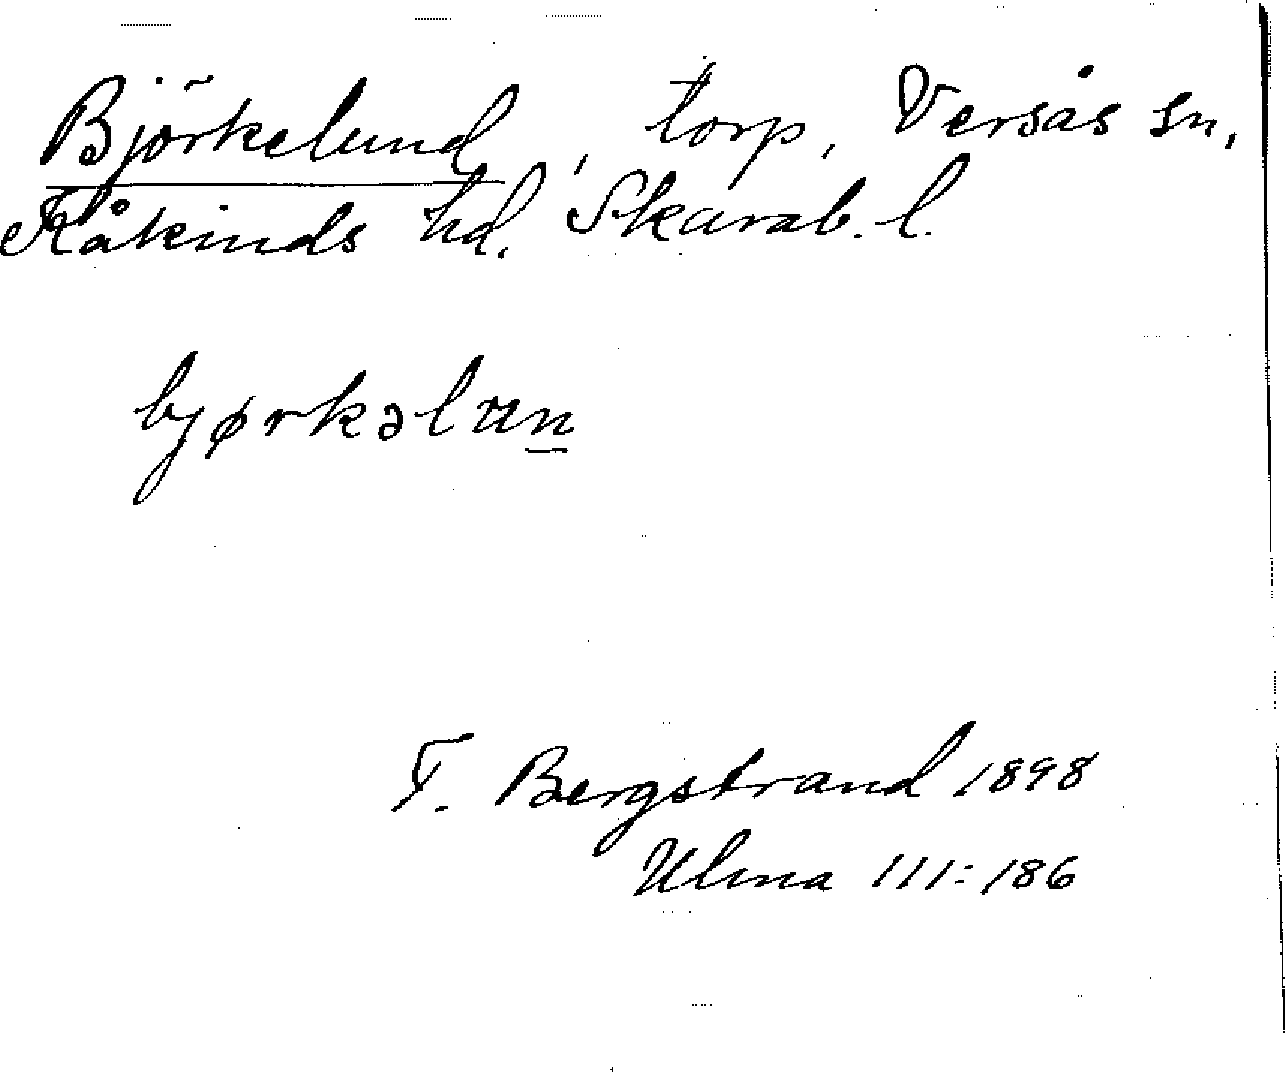 Björkelund, torp, Versås sn,
Kåkinds hd. Skarab. l.
bjørkəlɯn̲
F. Bergstrand 1898
Ulma 111:186